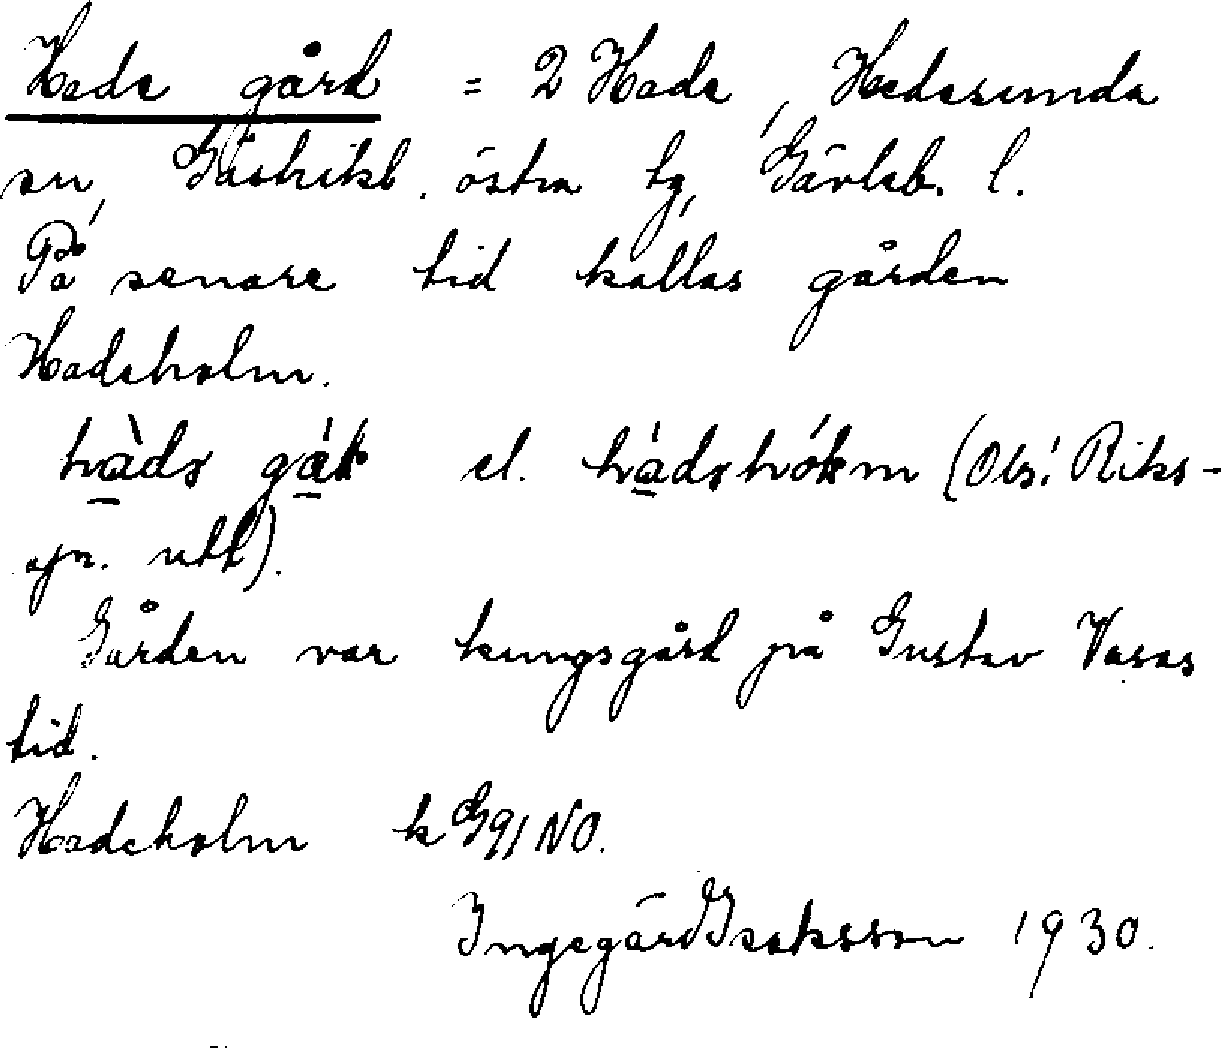 Hade gård = 2 Hade, Hedesunda
sn, Gästrikl. östra tg, Gävleb. l.
På senare tid kallas gården
Hadeholm.
el. (Obs! Riks-
spr. utt).
Gården var kungsgård på Gustav Vasas
tid.
Hadeholm k G 91 NO.
Ingegärd Isaksson 1930.